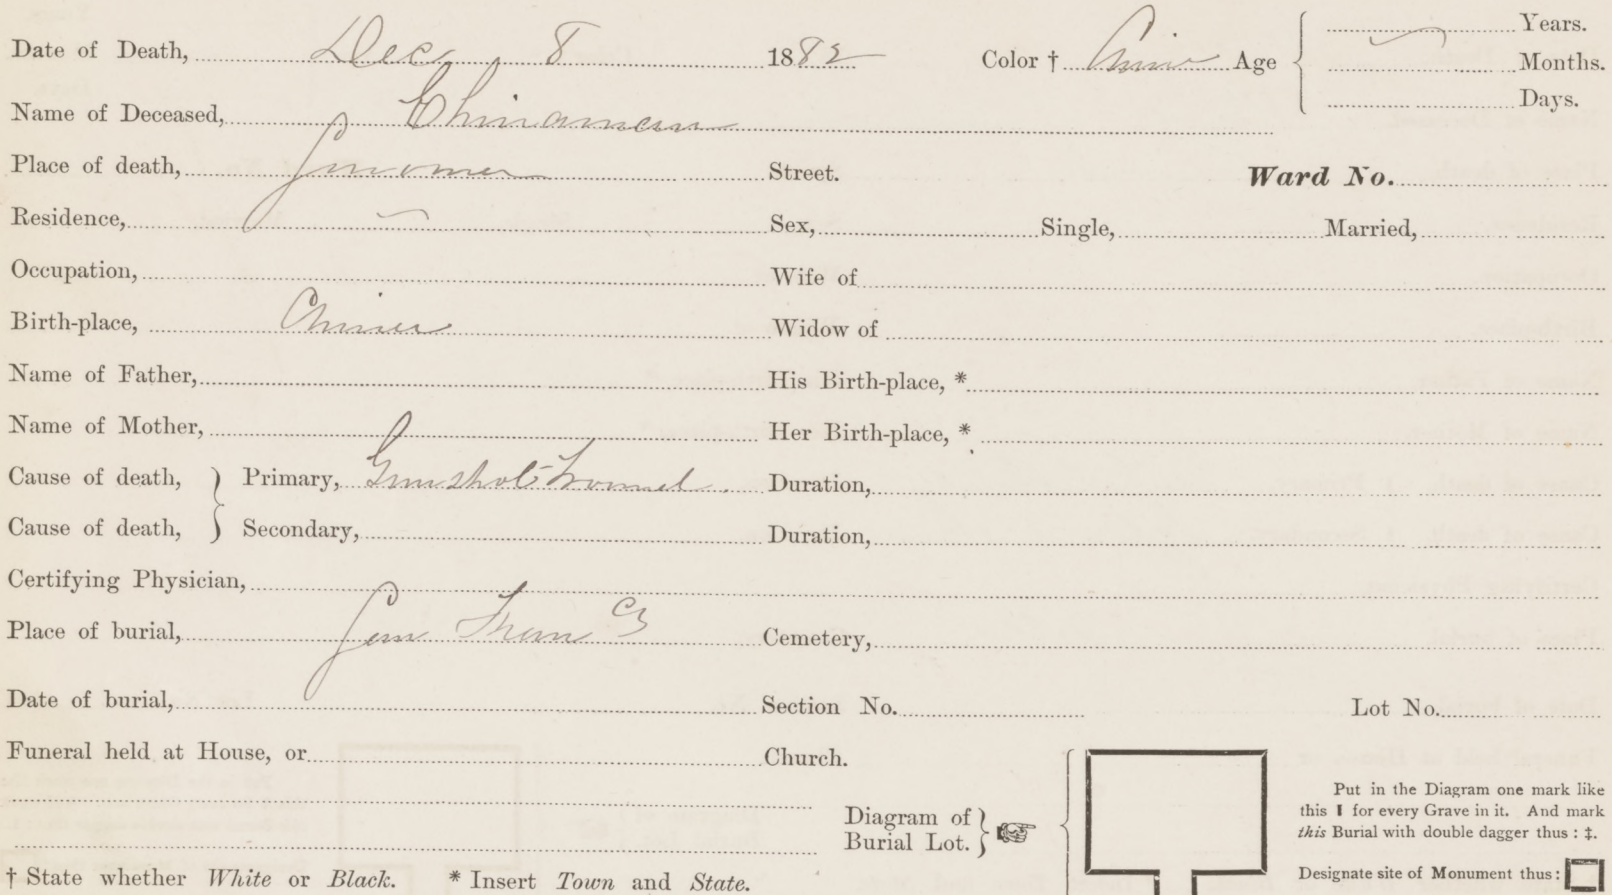 Date of Death, Dec 8 1882 Color † Age Years.
Months.
Days.
Name of Deceased, Chinaman
Place of death, Street. Ward No.
Residence, Sex, Single, Married,
Occupation, Wife of
Birth-place, China Widow of
Name of Father, His Birth-place, *
Name of Mother, Her Birth-place, *
Cause of death, Primary, Gunshot Wound. Duration,
Cause of death, Secondary, Duration,
Certifying Physician,
Place of burial, Cemetery,
Date of burial, Section No. Lot No.
Funeral held at House, or Church.
Diagram of
Burial Lot.
Put in the Diagram one mark like
this I for every Grave in it. And mark
this Burial with double dagger thus: ‡.
Designate site of Monument thus:
† State whether White or Black. * Insert Town and State.